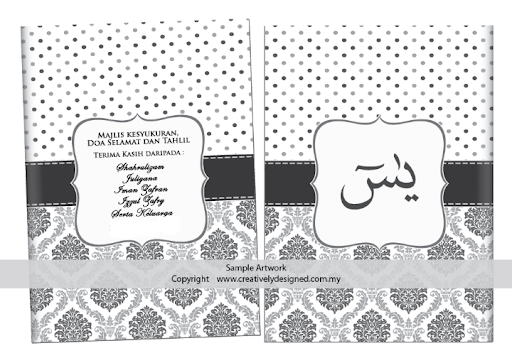 Majlis kesyukuran,
Doa Selamat dan Tahlil
Terima Kasih daripada :
Shahrulizam
Juliyana
Iman Zafran
Izzul Zafry
Serta Keluarga
يسٓ
Sample Artwork
Copyright www.creativelydesigned.com.my